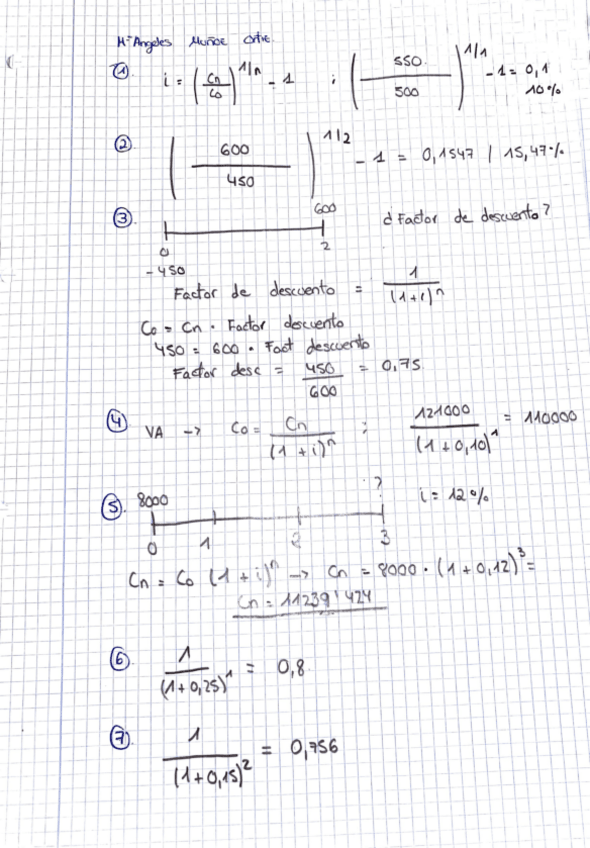 Mª Angeles Muñoz
① i = (Cn/Co)^1/n - 1 ; (550/500)^1/1 - 1 = 0,1
10%
② (600/450)^1/2 - 1 = 0,1547 | 15,47%
③ 600 ¿Factor de descuento?
0 2
-450
Factor de descuento = 1/(1+i)^n
Co = Cn · Factor descuento
450 = 600 · Fact descuento
Factor desc = 450/600 = 0,75
④ VA -> Co = Cn/(1+i)^n ; 121000/(1+0,10)^1 = 110000
⑤ 8000 ? i = 12%
0 1 2 3
Cn = Co (1+i)^n -> Cn = 8000 · (1+0,12)^3 =
Cn = 11239'424
⑥ 1/(1+0,25)^1 = 0,8
⑦ 1/(1+0,15)^2 = 0,756